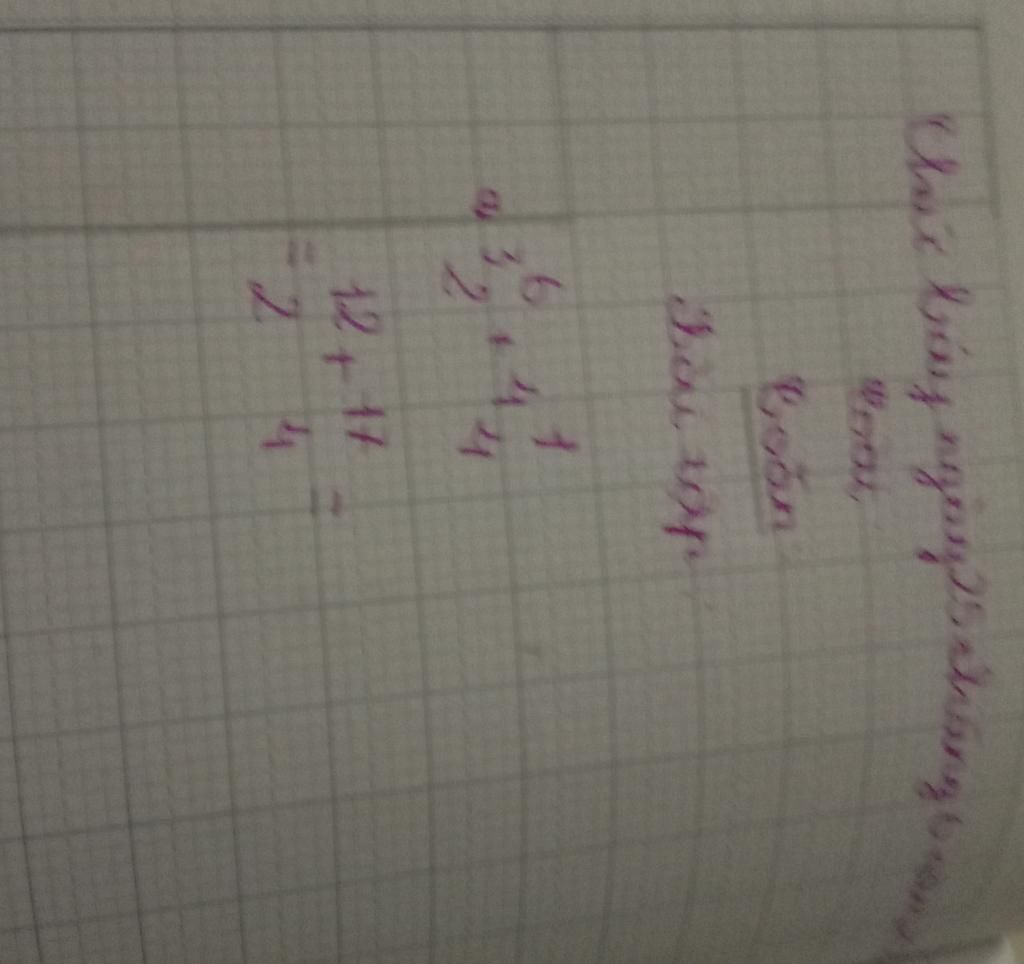 ngày 25 tháng 6 năm
Toán
Bài tập
a 3 6/2 + 4 1/4
= 12/2 + 17/4 =